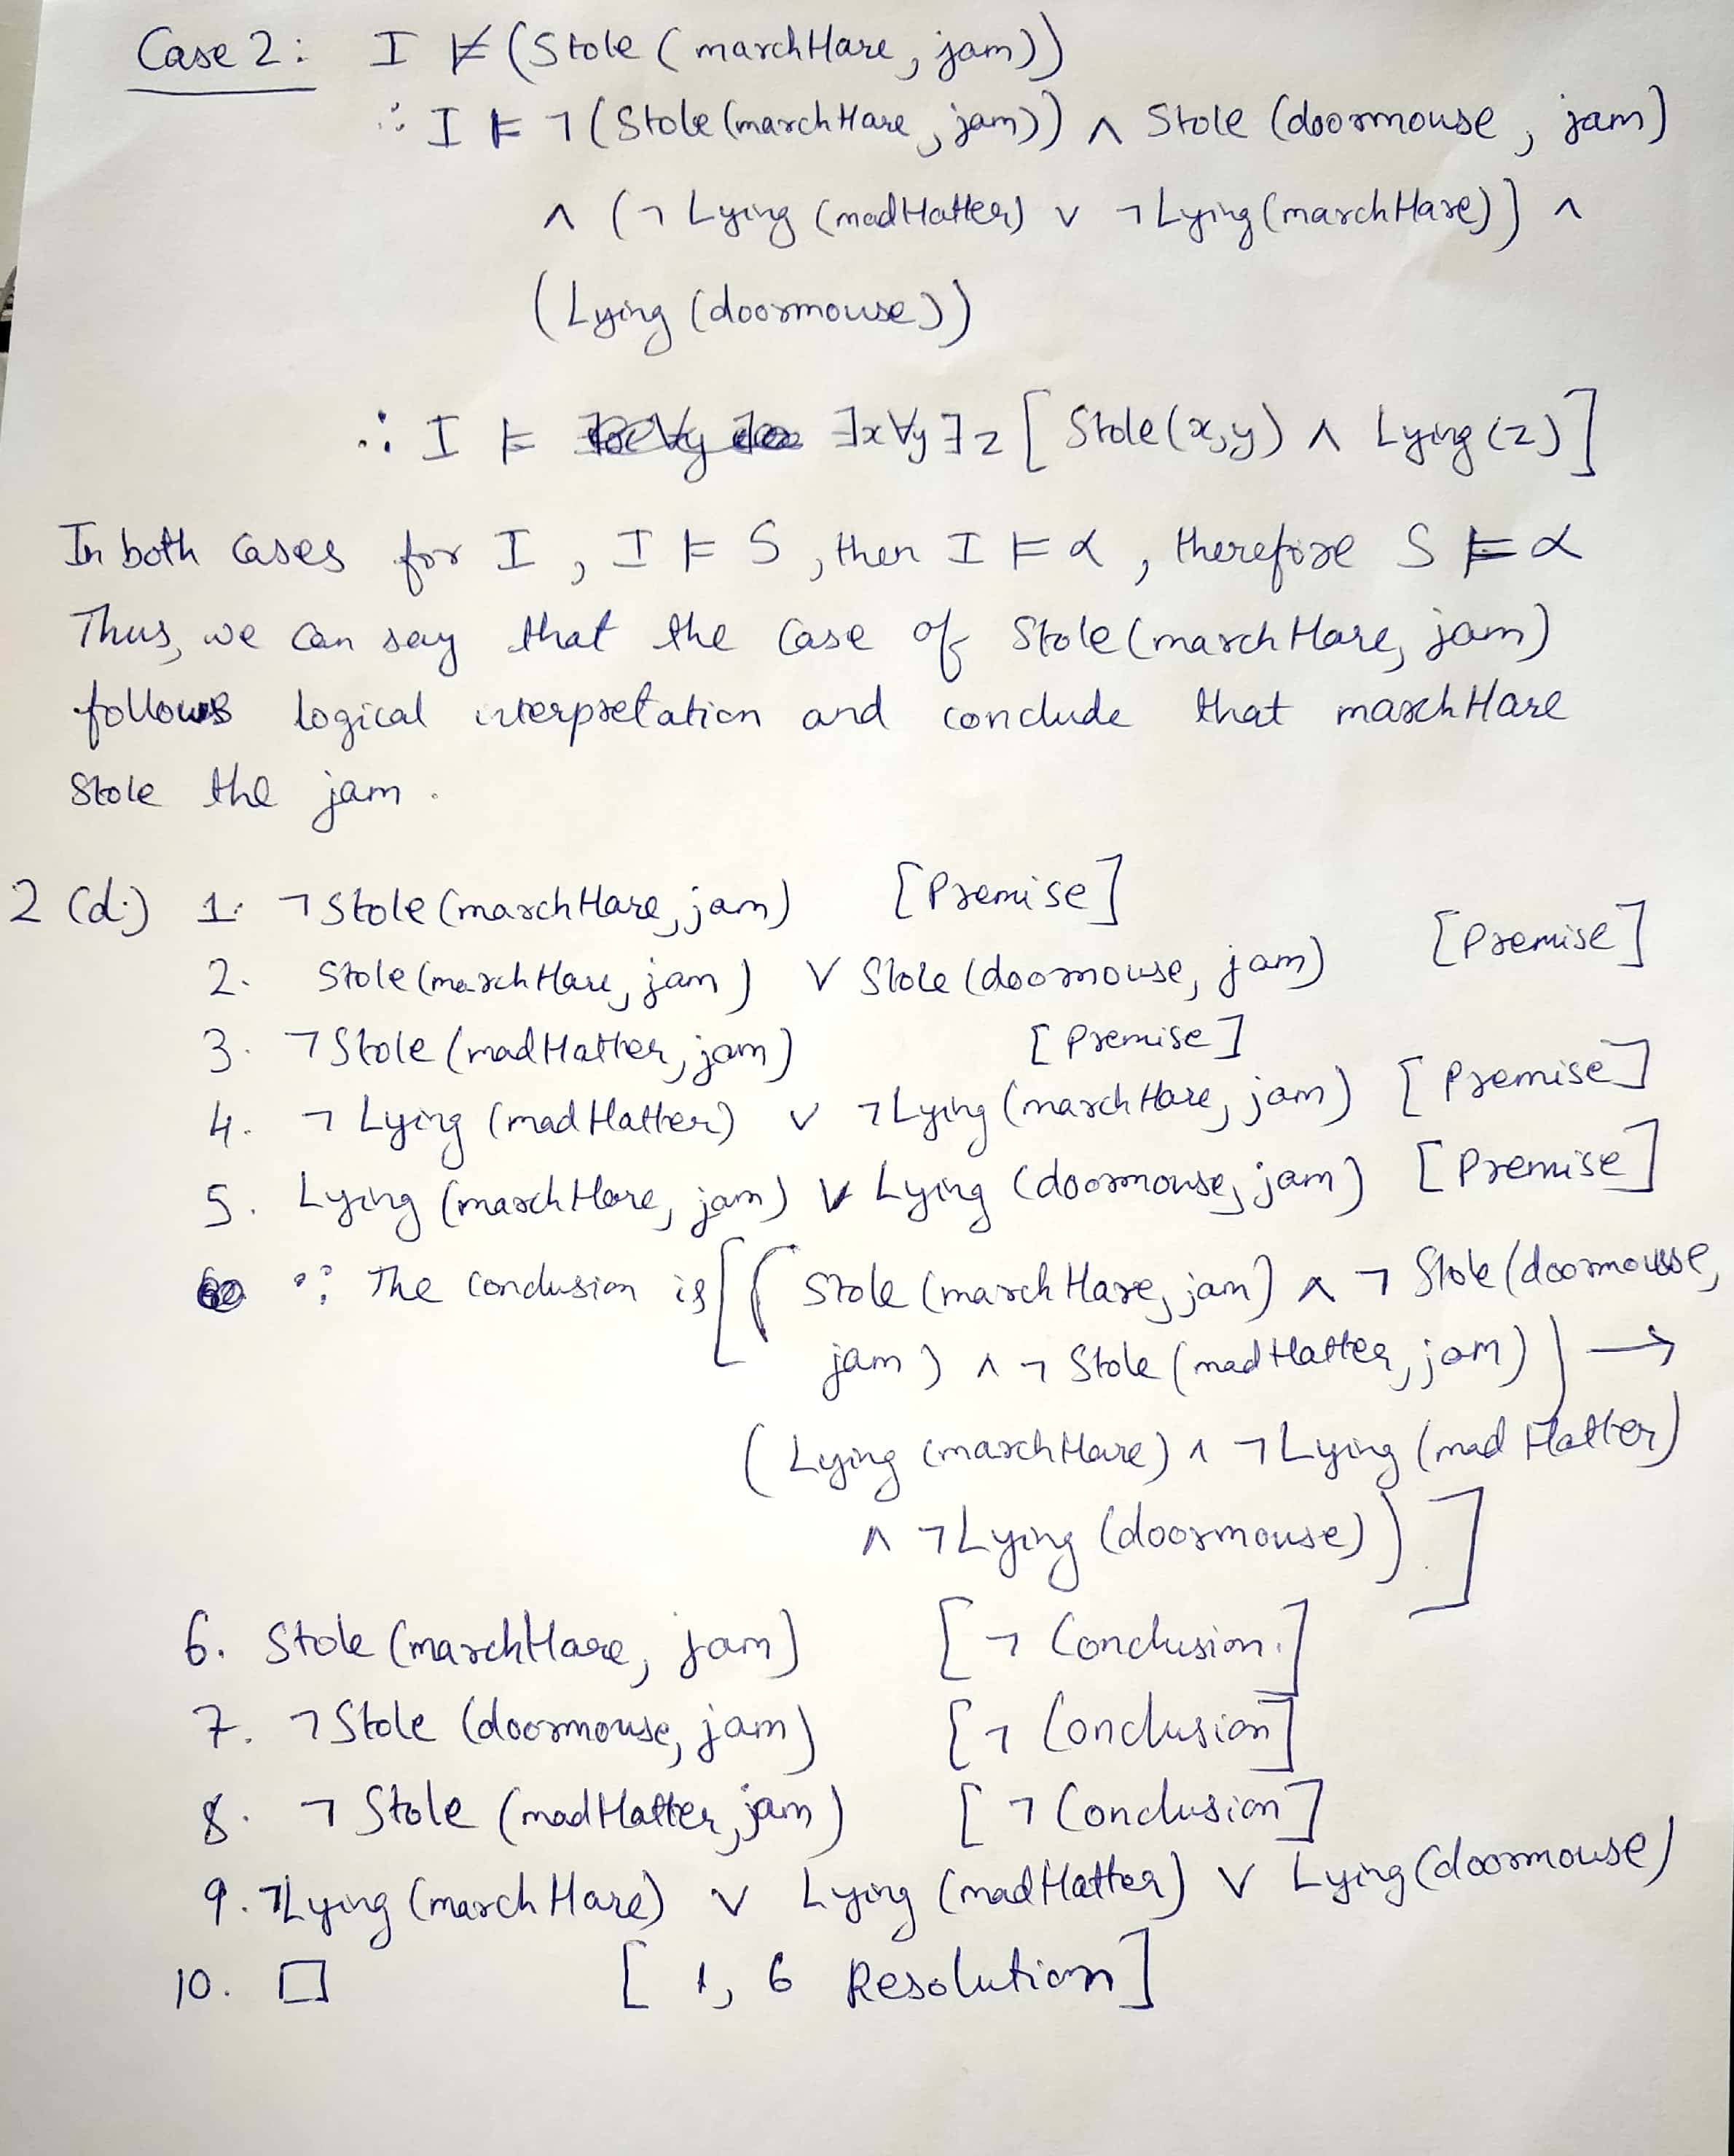 Case 2: I ⊭ (Stole (marchHare, jam))
∴ I ⊨ ¬(Stole(marchHare, jam)) ∧ Stole (doormouse, jam)
∧ (¬ Lying (madHatter) ∨ ¬Lying(marchHare)) ∧
(Lying (doormouse))
∴ I ⊨ ∃x∀y∃z [Stole(x,y) ∧ Lying(z)]
In both cases for I, I ⊨ S, then I ⊨ α, therefore S ⊨ α
Thus, we can say that the case of Stole(marchHare, jam)
follows logical iterpretation and conclude that marchHare
stole the jam.
2 (d.) 1. ¬Stole(marchHare, jam) [Premise]
2. Stole(marchHare, jam) ∨ Stole (doormouse, jam) [Premise]
3. ¬Stole (madHatter, jam) [Premise]
4. ¬ Lying (madHatter) ∨ ¬Lying (marchHare, jam) [Premise]
5. Lying (marchHare, jam) ∨ Lying (doormouse, jam) [Premise]
∵ The conclusion is [( Stole (marchHare, jam) ∧ ¬ Stole (doormouse,
jam) ∧ ¬ Stole (madHatter, jam)) →
(Lying (marchHare) ∧ ¬Lying (madHatter)
∧ ¬Lying (doormouse))]
6. Stole (marchHare, jam) [¬ Conclusion.]
7. ¬Stole (doormouse, jam) [¬ Conclusion]
8. ¬ Stole (madHatter, jam) [¬ Conclusion]
9. ¬Lying (marchHare) ∨ Lying (madHatter) ∨ Lying (doormouse)
10. □ [1, 6 Resolution]